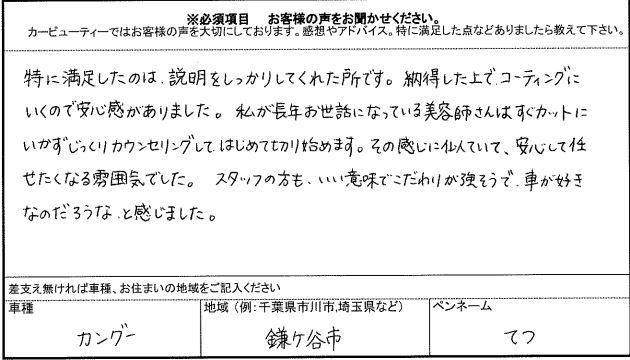 ※必須項目　お客様の声をお聞かせください。
カービューティーではお客様の声を大切にしております。感想やアドバイス。特に満足した点などありましたら教えて下さい。
特に満足したのは、説明をしっかりしてくれた所です。納得した上で、コーティングに
いくので安心感がありました。私が長年お世話になっている美容師さんはすぐカットに
いかずじっくりカウンセリングして、はじめて切り始めます。その感じに似ていて、安心して任
せたくなる雰囲気でした。スタッフの方も、いい意味でこだわりが強そうで、車が好き
なのだろうな、と感じました。
差支え無ければ車種、お住まいの地域をご記入ください
車種
地域（例：千葉県市川市,埼玉県など）
ペンネーム
カングー
鎌ケ谷市
てつ